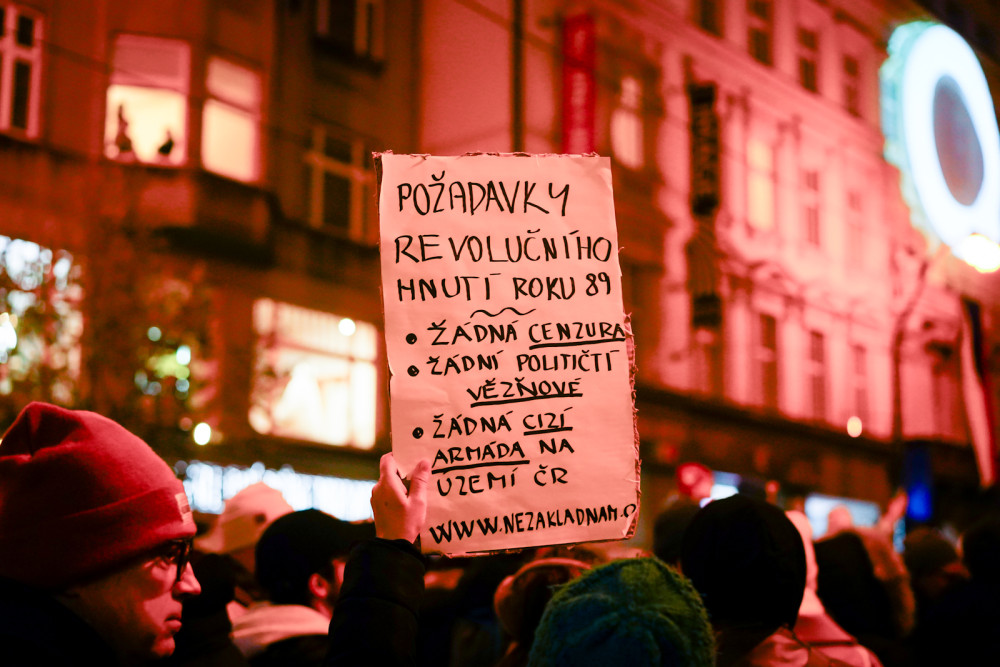 POŽADAVKY
REVOLUČNÍHO
HNUTÍ ROKU 89
• ŽÁDNÁ CENZURA
• ŽÁDNÍ POLITIČTÍ
VĚZŇOVÉ
• ŽÁDNÁ CIZÍ
ARMÁDA NA
ÚZEMÍ ČR
WWW.NEZAKLADNAM.C